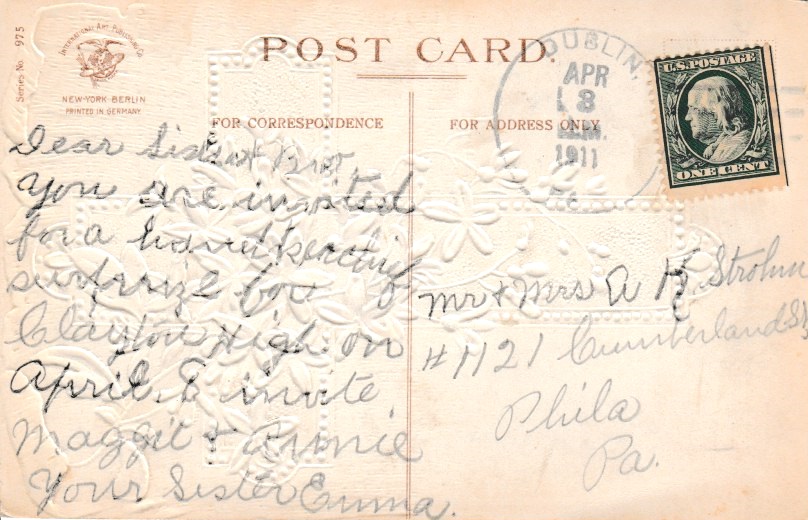 Series No. 975
INTERNATIONAL ART PUBLISHING CO.
NEW-YORK-BERLIN
PRINTED IN GERMANY
POST CARD.
FOR CORRESPONDENCE
FOR ADDRESS ONLY
DUBLIN,
APR
3
1911
U.S. POSTAGE
ONE CENT
Dear Sis & Bro
You are invited
for a handkerchief
surprize for
Clayton High on
April 8 invite
Maggie & Annie
Your Sister Emma.
Mr & Mrs A K Strohm
#1121 Cumberland St
Phila
Pa.